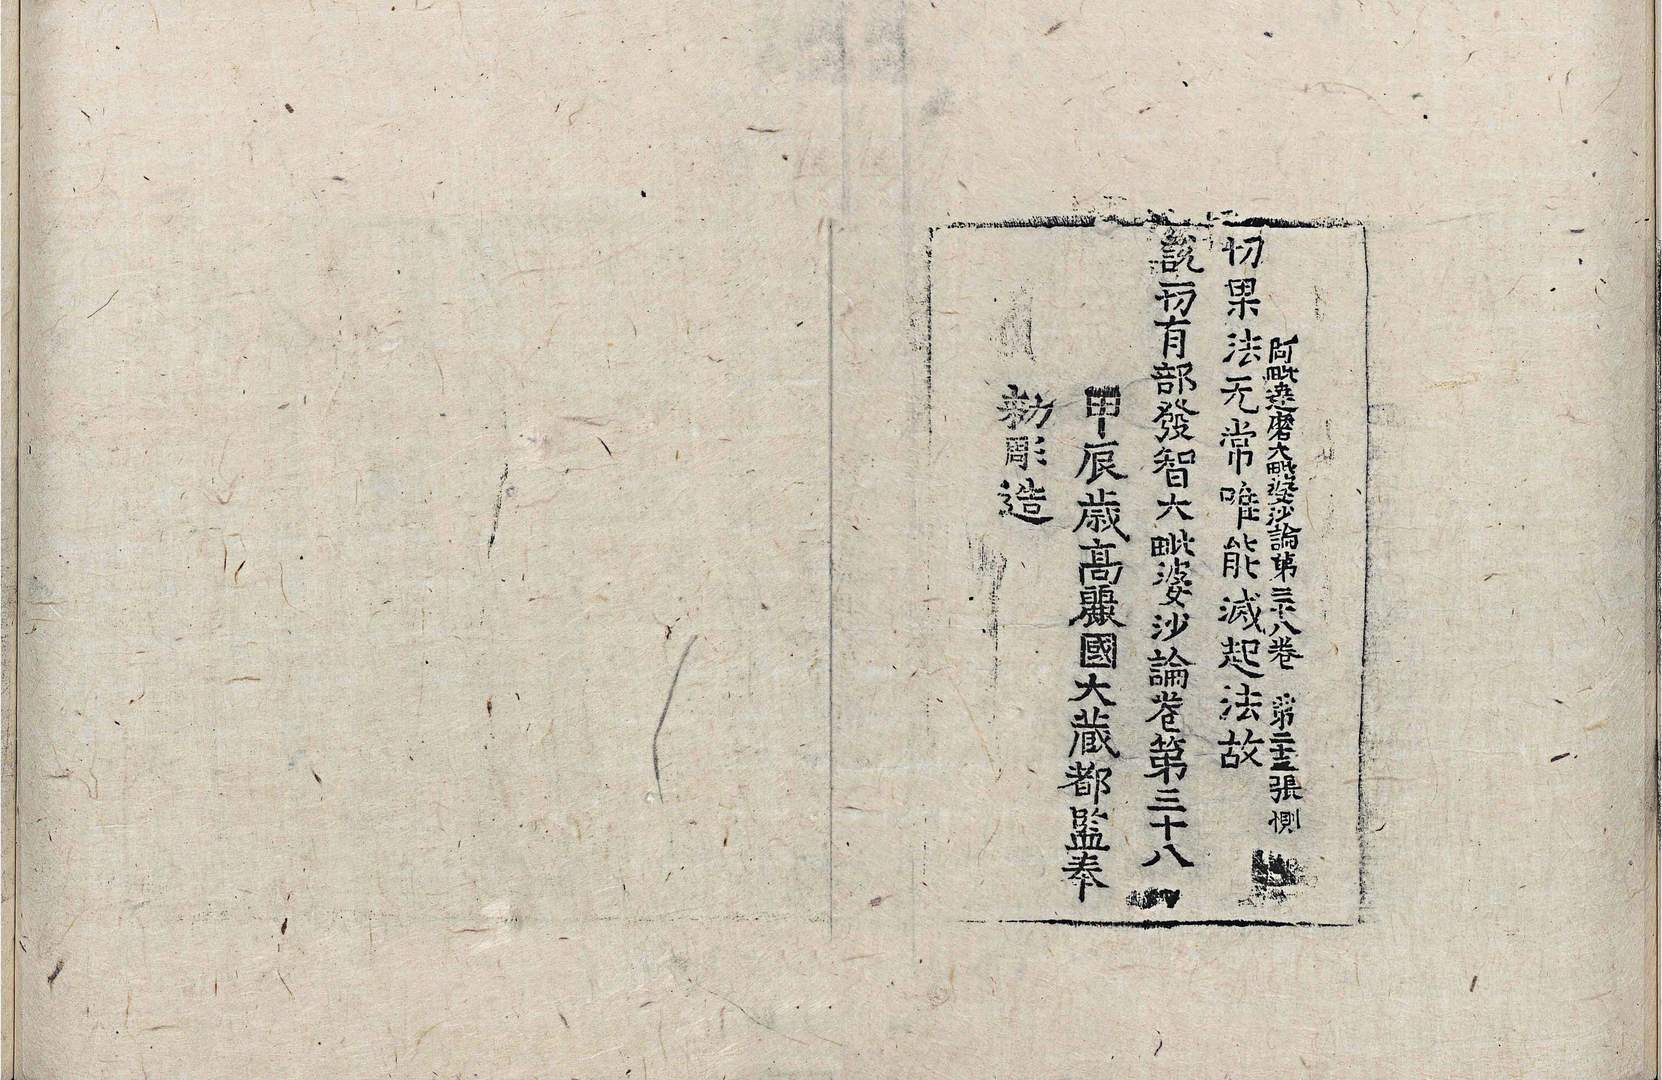 阿毗達磨大毗婆沙論第三十八卷 第二十三張 惻
切果法无常唯能滅起法故
說一切有部發智大毗婆沙論卷第三十八
甲辰歲高麗國大藏都監奉
勑彫造